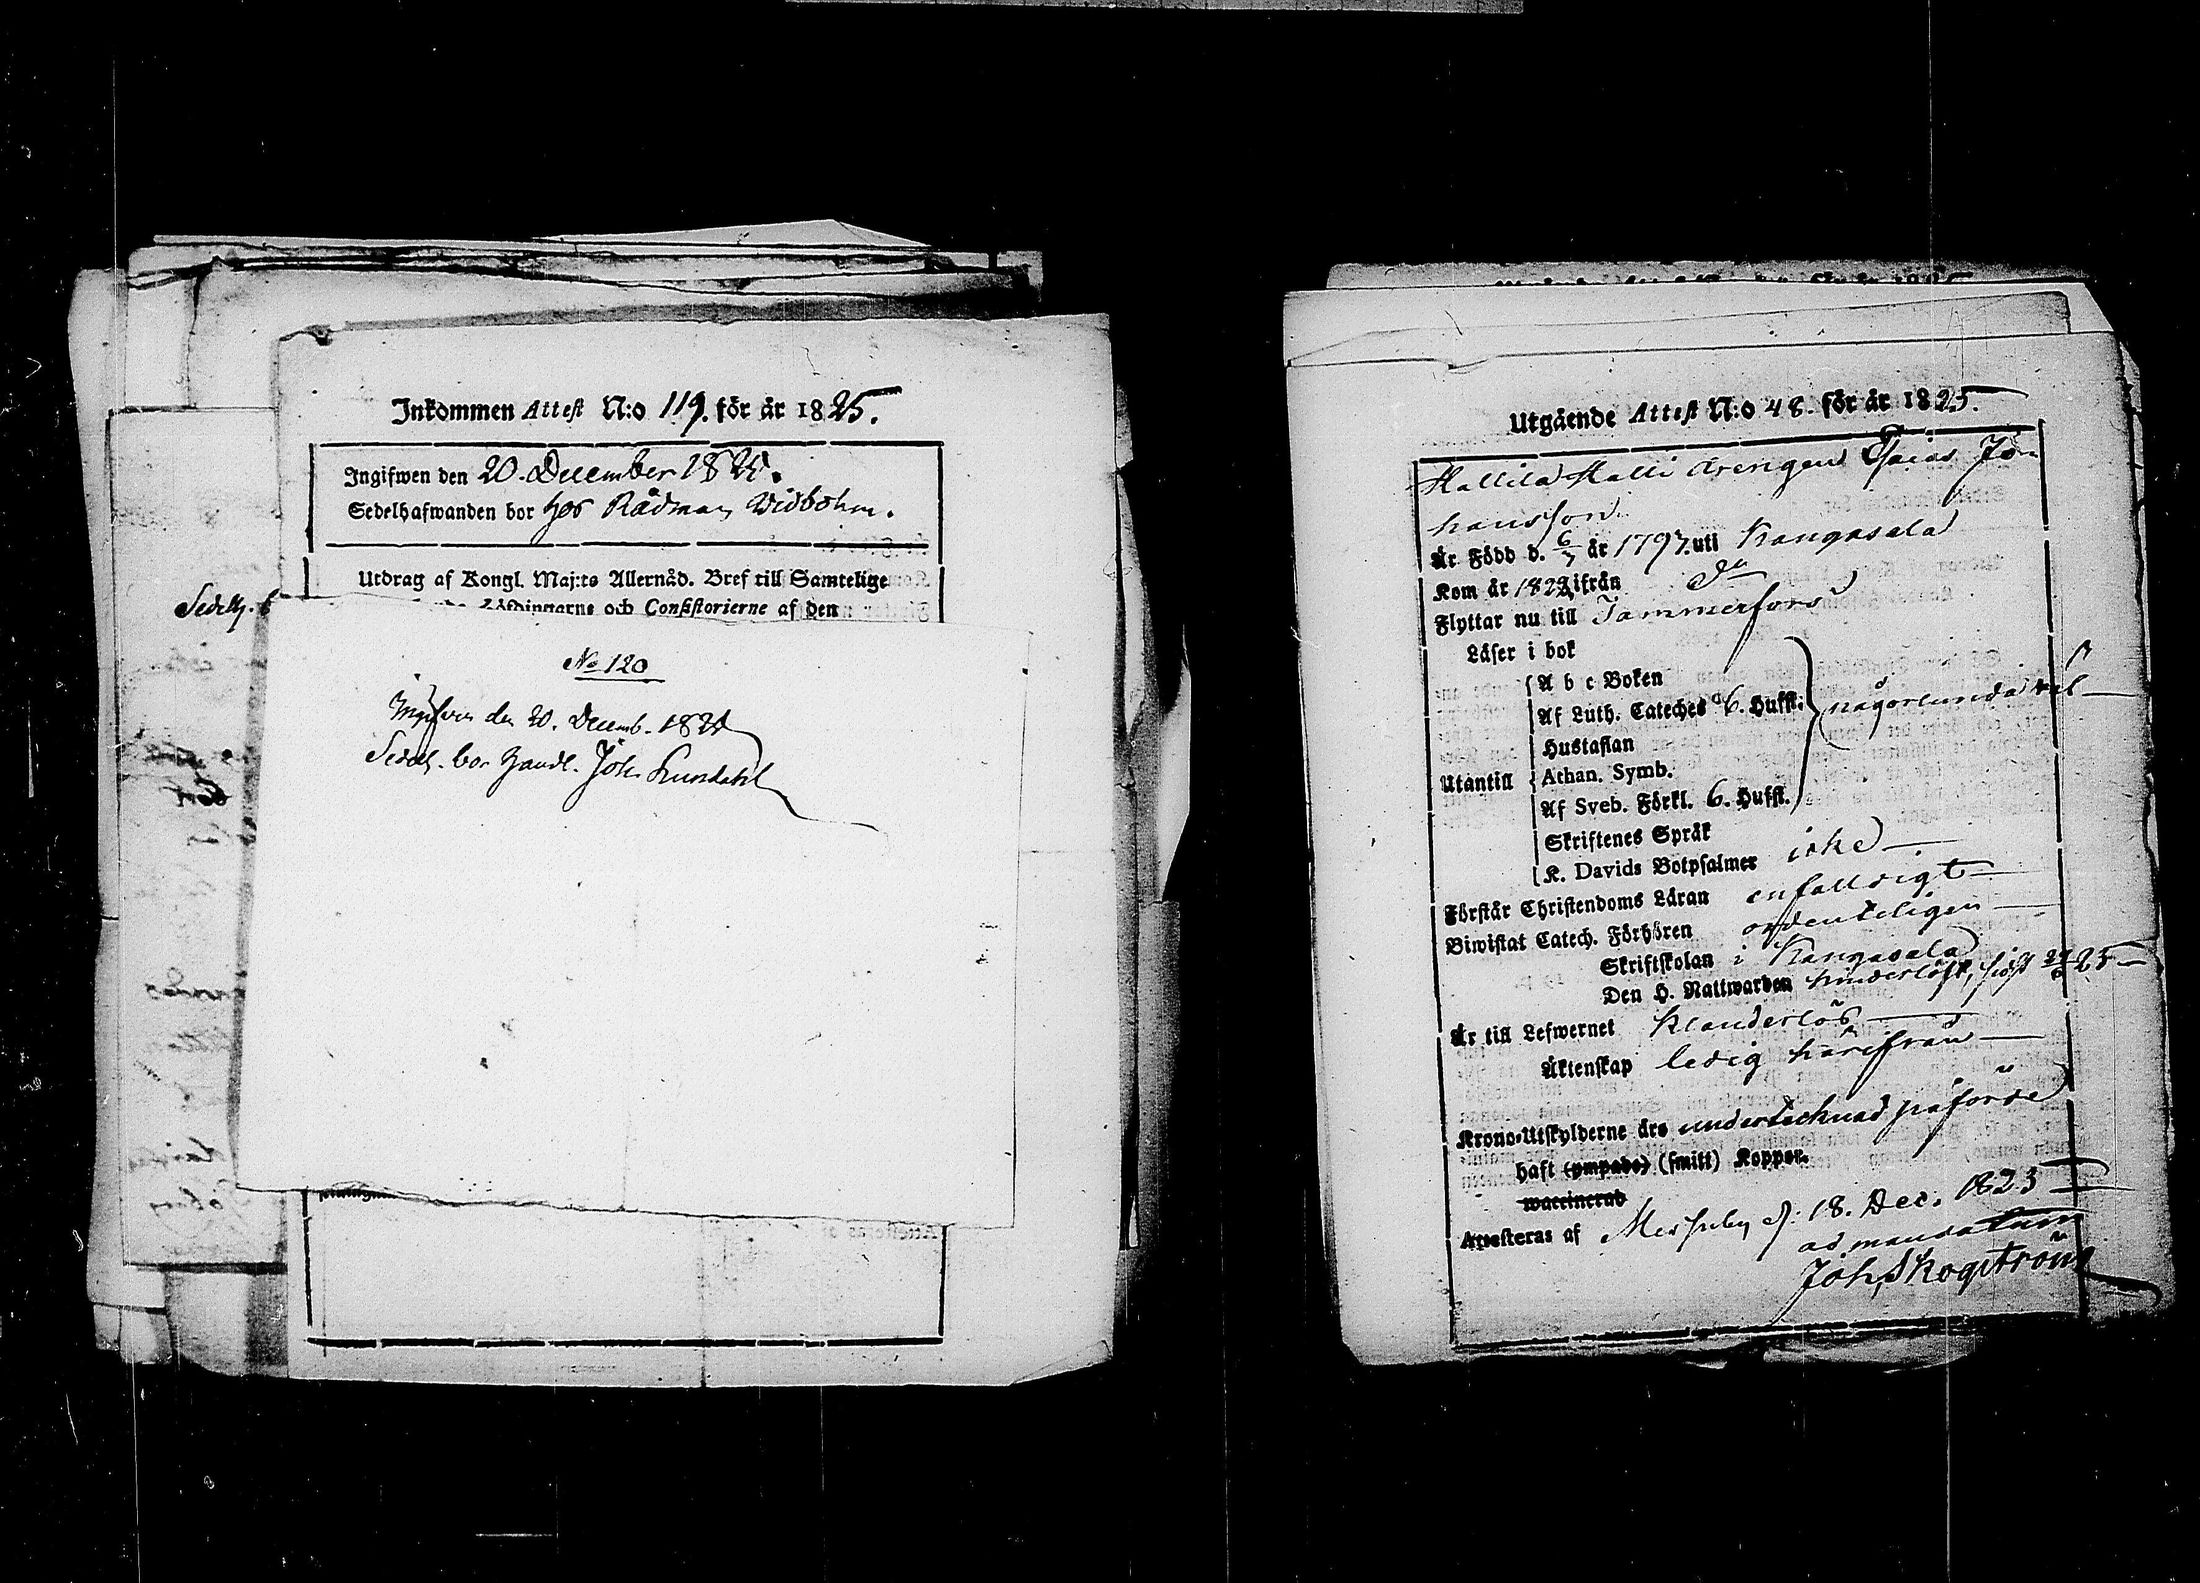 Inkommen Attest N:o 119. för år 1825.
Ingifwen den 20. December 1825.
Sedelhafwanden bor hos Rådman Widbohm.
Utdrag af Kongl. Maj:ts Allernåd. Bref till Samtelige
Höfdingarne och Consistorierne af den
Sedelh.
No 120
Ingifven den 20. Decemb. 1825
Sedelh. bor Handl. Joh. Lundahl
Utgående Attest N:o 48. för år 1825.
Hallila Halli drengen Esaias Jo-
hansson
Är Född d. 6/7 år 1797. uti Kangasala
Kom år 1822 ifrån Do
Flyttar nu till Tammerfors
Läser i bok
A b c Boken
Af Luth. Cateches 6. Hufst. någorlunda väl
Hustaflan
Utantill Athan. Symb.
Af Sveb. Förkl. 6. Hufst.
Skriftenes Språk
K. Davids Botpsalmer icke
Förstår Christendoms Läran enfalldigt
Biwistat Catech. Förhören ordenteligen
Skriftskolan i Kangasala
Den H. Nattwarden hinderlöst, sidst 25
Är till Lefwernet klanderlös
Äktenskap ledig härifrån
Krono-Utskylderne äro undertecknad påförde
haft (ympade) (smitt) Koppor.
waccinerad
Attesteras af Messuby d: 18. Dec. 1825
ad mandatum
Joh. Skogström